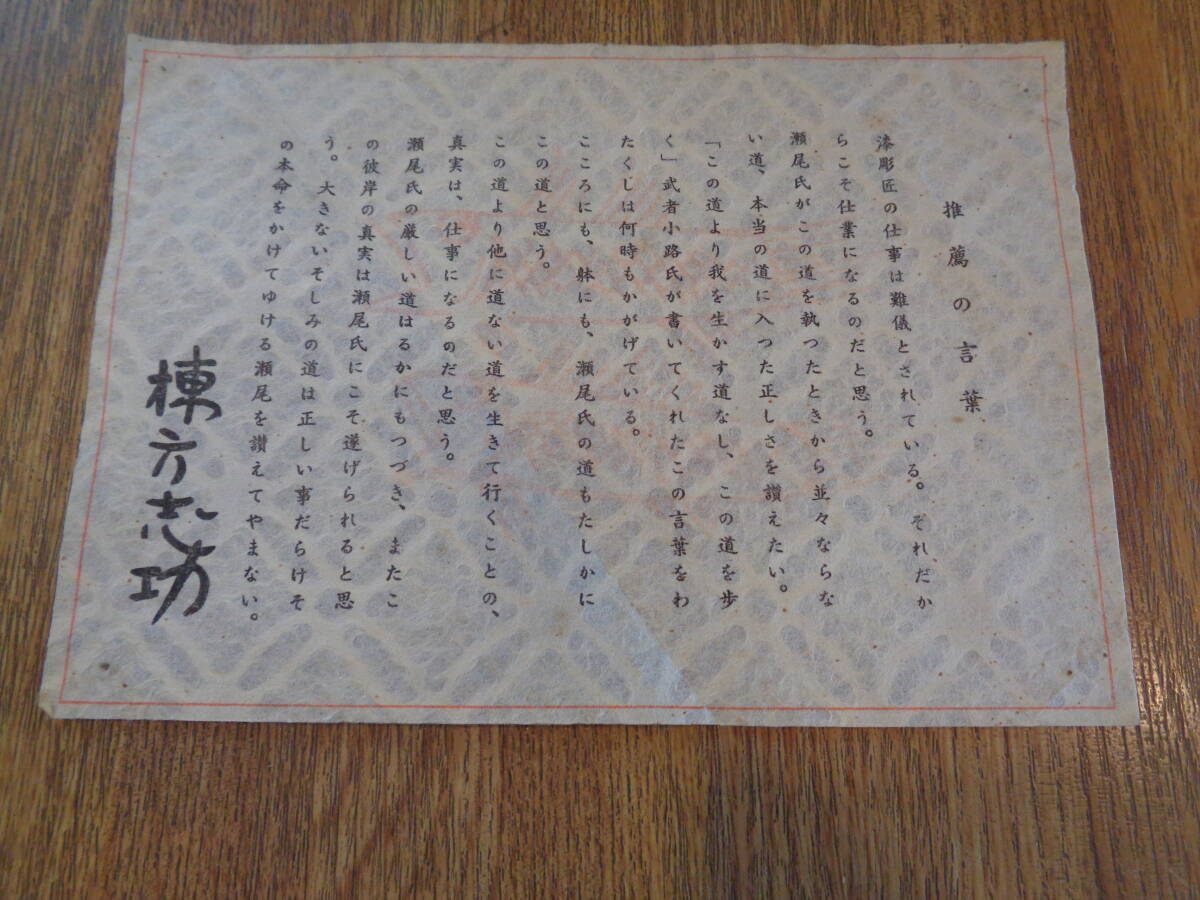 推薦の言葉
漆彫匠の仕事は難儀とされている。それだか
らこそ仕業になるのだと思う。
瀬尾氏がこの道を執つたときから並々ならな
い道、本当の道に入つた正しさを讃えたい。
「この道より我を生かす道なし、この道を歩
く」武者小路氏が書いてくれたこの言葉をわ
たくしは何時もかがげている。
こころにも、躰にも、瀬尾氏の道もたしかに
この道と思う。
この道より他に道ない道を生きて行くことの、
真実は、仕事になるのだと思う。
瀬尾氏の厳しい道はるかにもつづき、またこ
の彼岸の真実は瀬尾氏にこそ遂げられると思
う。大きないそしみの道は正しい事だらけそ
の本命をかけてゆける瀬尾を讃えてやまない。
棟方志功